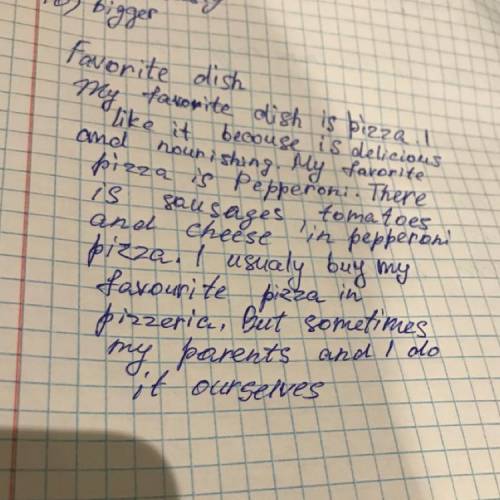 bigger
Favorite dish
My favorite dish is pizza. I
like it becouse is delicious
and nourishing. My favorite
pizza is Pepperoni. There
is sausages, tomatoes
and cheese in pepperoni
pizza. I usualy buy my
favourite pizza in
pizzeria. But sometimes
my parents and I do
it ourselves